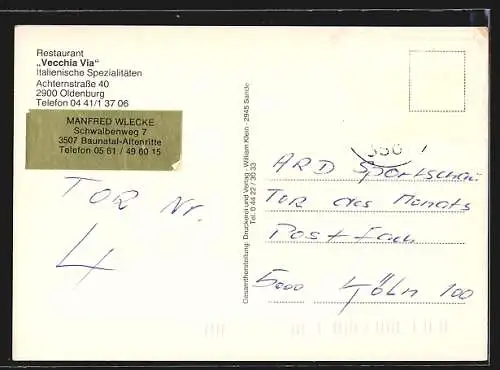 Restaurant
„Vecchia Via"
Italienische Spezialitäten
Achternstraße 40
2900 Oldenburg
Telefon 04 41/1 37 06
MANFRED WLECKE
Schwalbenweg 7
3507 Baunatal-Altenritte
Telefon 05 61 / 49 60 15
TOR Nr.
4
Gesamtherstellung: Druckerei und Verlag - William Klein - 2945 Sande
Tel. 0 44 22 / 30 33
350
ARD Sportschau
TOR des Monats
Postfach
5000 KÖLN 100